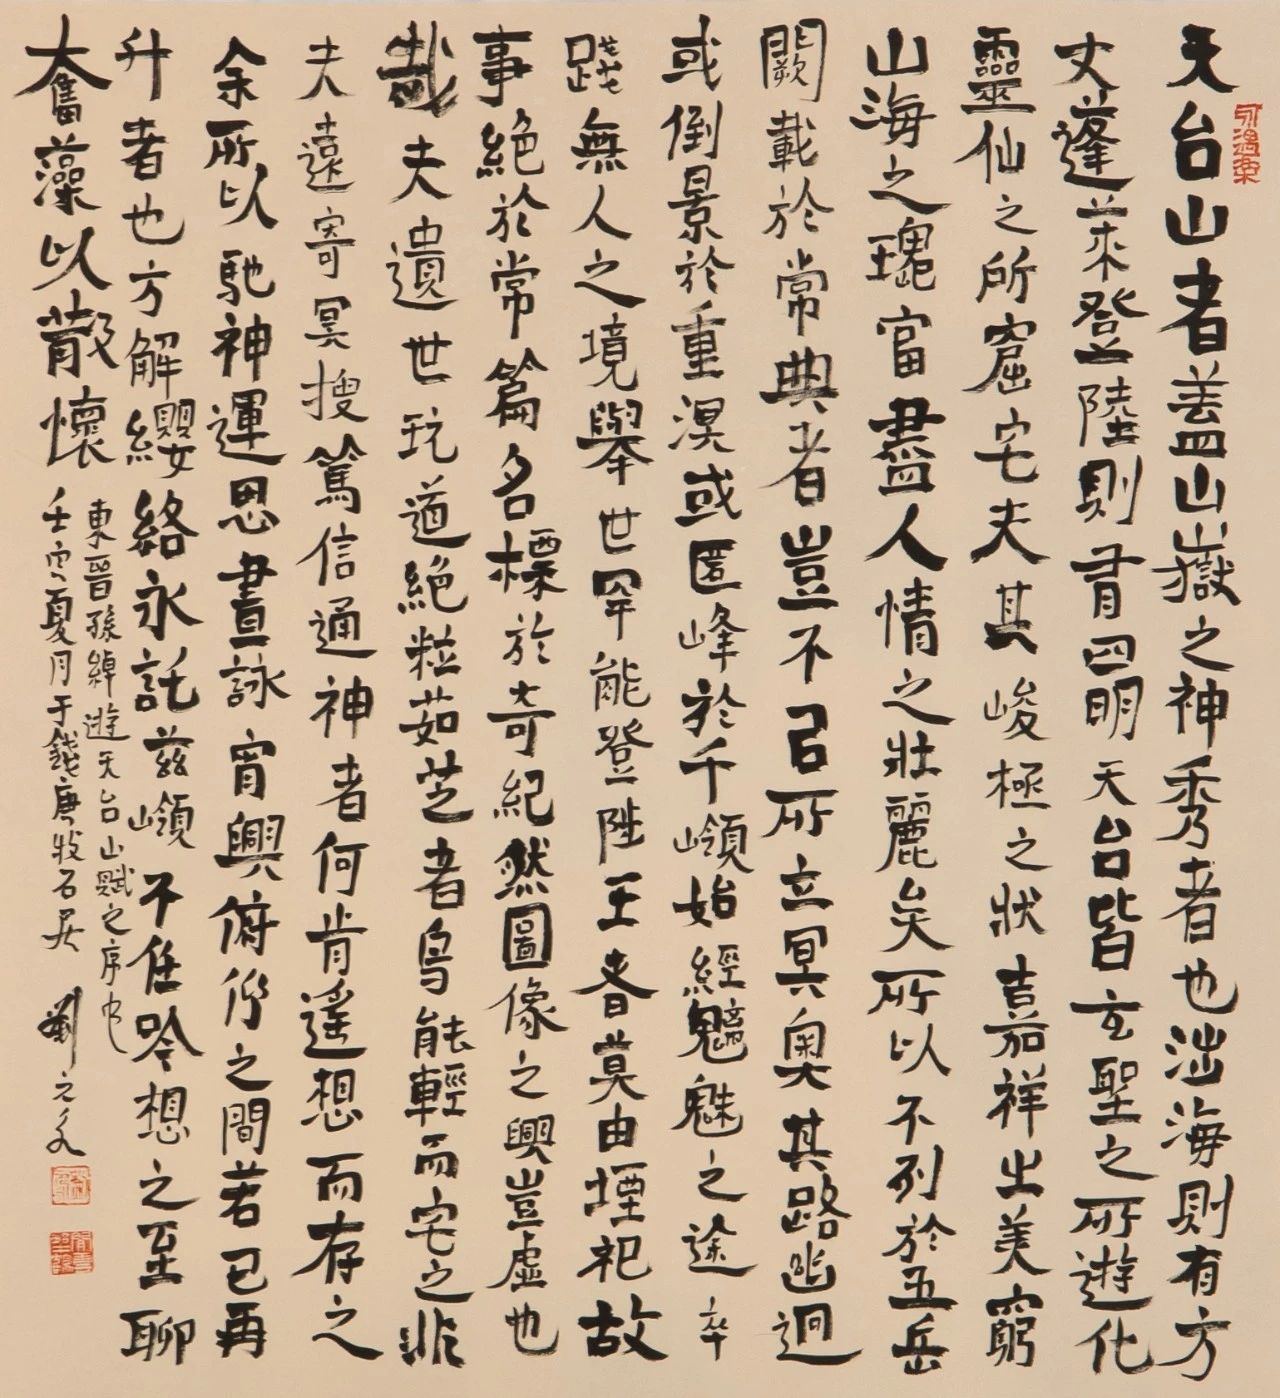 天台山者蓋山嶽之神秀者也涉海則有方
丈蓬萊登陸則有四明天台皆玄聖之所遊化
靈仙之所窟宅夫其峻極之狀嘉祥之美窮
山海之瑰富盡人情之壯麗矣所以不列於五岳
闕載於常典者豈不以所立冥奧其路幽迥
或倒景於重溟或匿峰於千嶺始經魑魅之途卒
踐無人之境舉世罕能登陟王者莫由堙祀故
事絕於常篇名標於奇紀然圖像之興豈虛也
哉夫遺世玩道絕粒茹芝者烏能輕而宅之非
夫遠寄冥搜篤信通神者何肯遙想而存之
余所以馳神運思晝詠宵興俯仰之間若已再
升者也方解纓絡永託茲嶺不任吟想之至聊
奮藻以散懷
東晉孫綽遊天台山賦之序也
壬寅夏月于錢唐牧石居 劉元